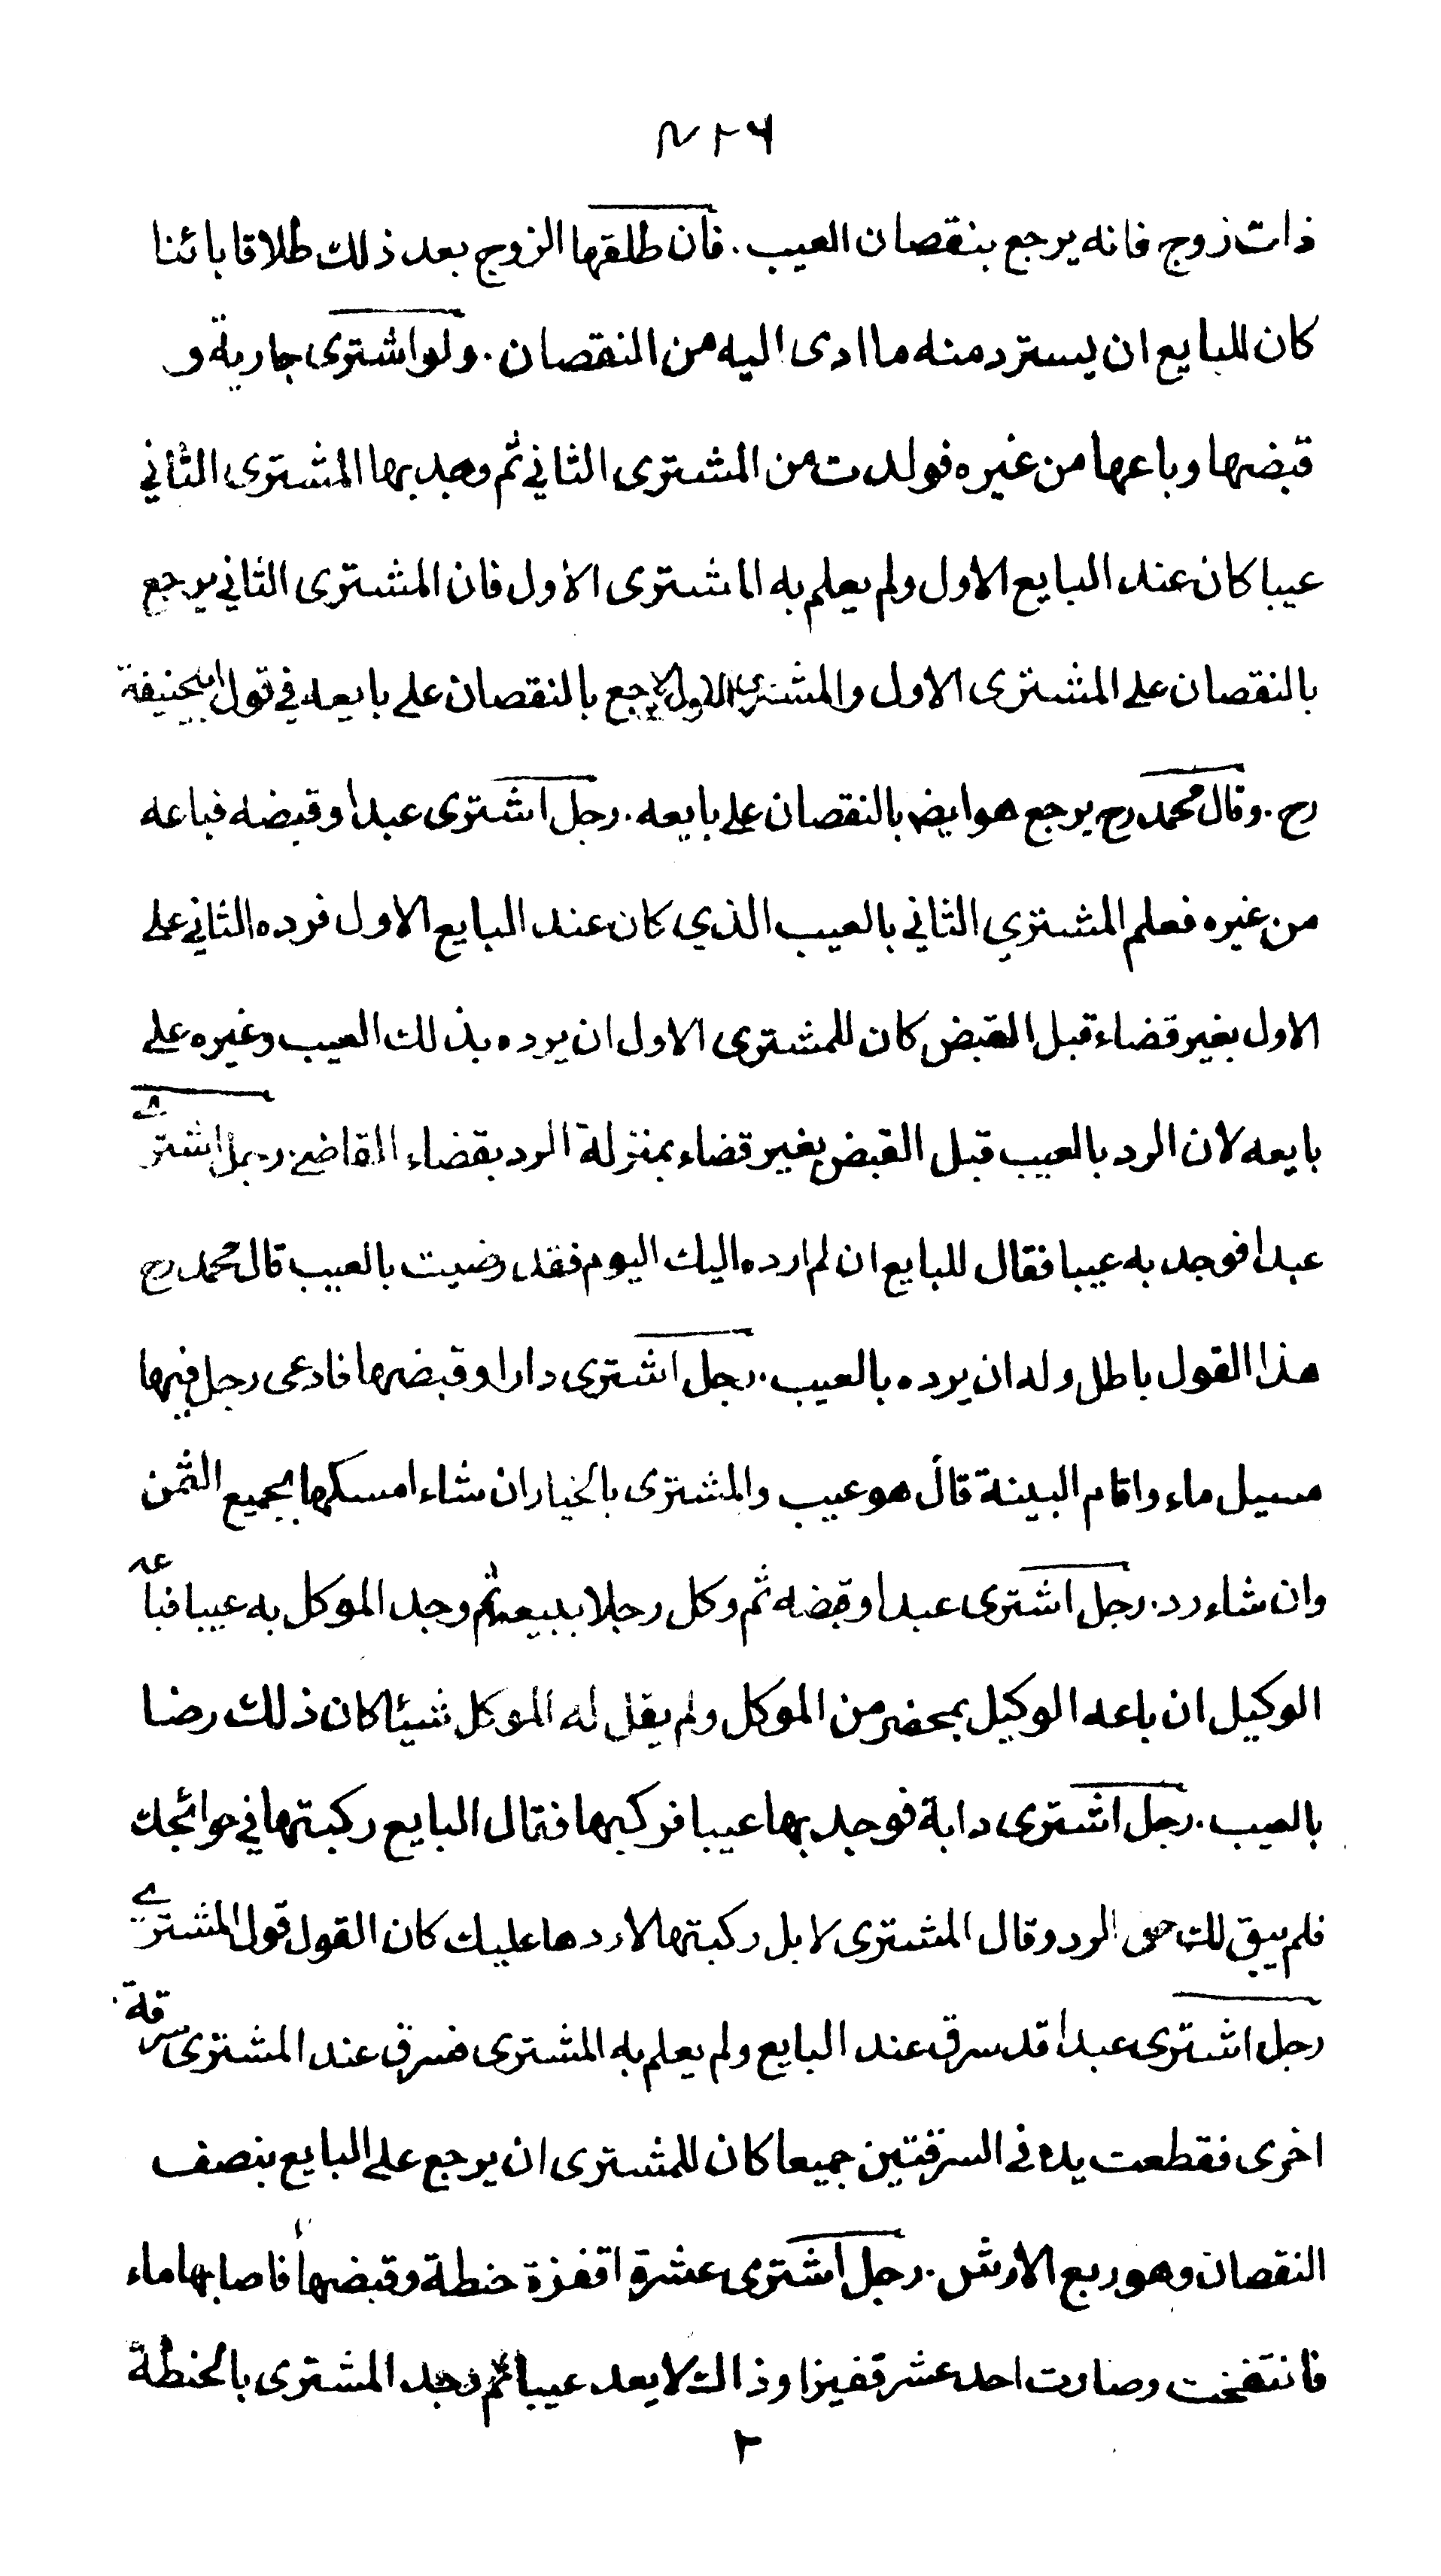 ٤٢٦
ذات زوج فانه يرجع بنقصان العيب. فان طلقها الزوج بعد ذلك طلاقا بائنا
كان للبايع ان يسترد منه ما ادى اليه من النقصان. ولو اشترى جارية و
قبضها وباعها من غيره فولدت من المشترى الثاني ثم وجد بها المشترى الثاني
عيبا كان عند البايع الاول ولم يعلم به المشترى الاول فان المشترى الثاني يرجع
بالنقصان على المشترى الاول والمشترى الاول لا يرجع بالنقصان على بايعه في قول ابيحنيفة
رح. وقال محمد رح يرجع هو ايض بالنقصان على بايعه. رجل اشترى عبدا وقبضه فباعه
من غيره فعلم المشتري الثاني بالعيب الذي كان عند البايع الاول فرده الثاني على
الاول بغير قضاء قبل القبض كان للمشترى الاول ان يرده بذلك العيب وغيره على
بايعه لان الرد بالعيب قبل القبض بغير قضاء بمنزلة الرد بقضاء القاضي. رجل اشترى
عبدا فوجد به عيبا فقال للبايع ان لم ارده اليك اليوم فقد رضيت بالعيب قال محمد رح
هذا القول باطل وله ان يرده بالعيب. رجل اشترى دارا وقبضها فادعى رجل فيها
مسيل ماء واقام البينة قال هو عيب والمشترى بالخيار ان شاء امسكها بجميع الثمن
وان شاء رد. رجل اشترى عبدا وقبضه ثم وكل رجلا ببيعه ثم وجد الموكل به عيبا فباعه
الوكيل ان باعه الوكيل بمحضر من الموكل ولم يقل له الموكل شيئا كان ذلك رضا
بالعيب. رجل اشترى دابة فوجد بها عيبا فركبها فقال البايع ركبتها في حوائجك
فلم يبق لك حق الرد وقال المشترى لا بل ركبتها لاردها عليك كان القول قول المشترى
رجل اشترى عبدا قد سرق عند البايع ولم يعلم به المشترى فسرق عند المشترى سرقة
اخرى فقطعت يده في السرقتين جميعا كان للمشترى ان يرجع على البايع بنصف
النقصان وهو ربع الارش. رجل اشترى عشرة اقفزة حنطة وقبضها فاصابها ماء
فانتفخت وصارت احد عشر قفيزا وذالك لا يعد عيبا ثم وجد المشترى بالحنطة
٢